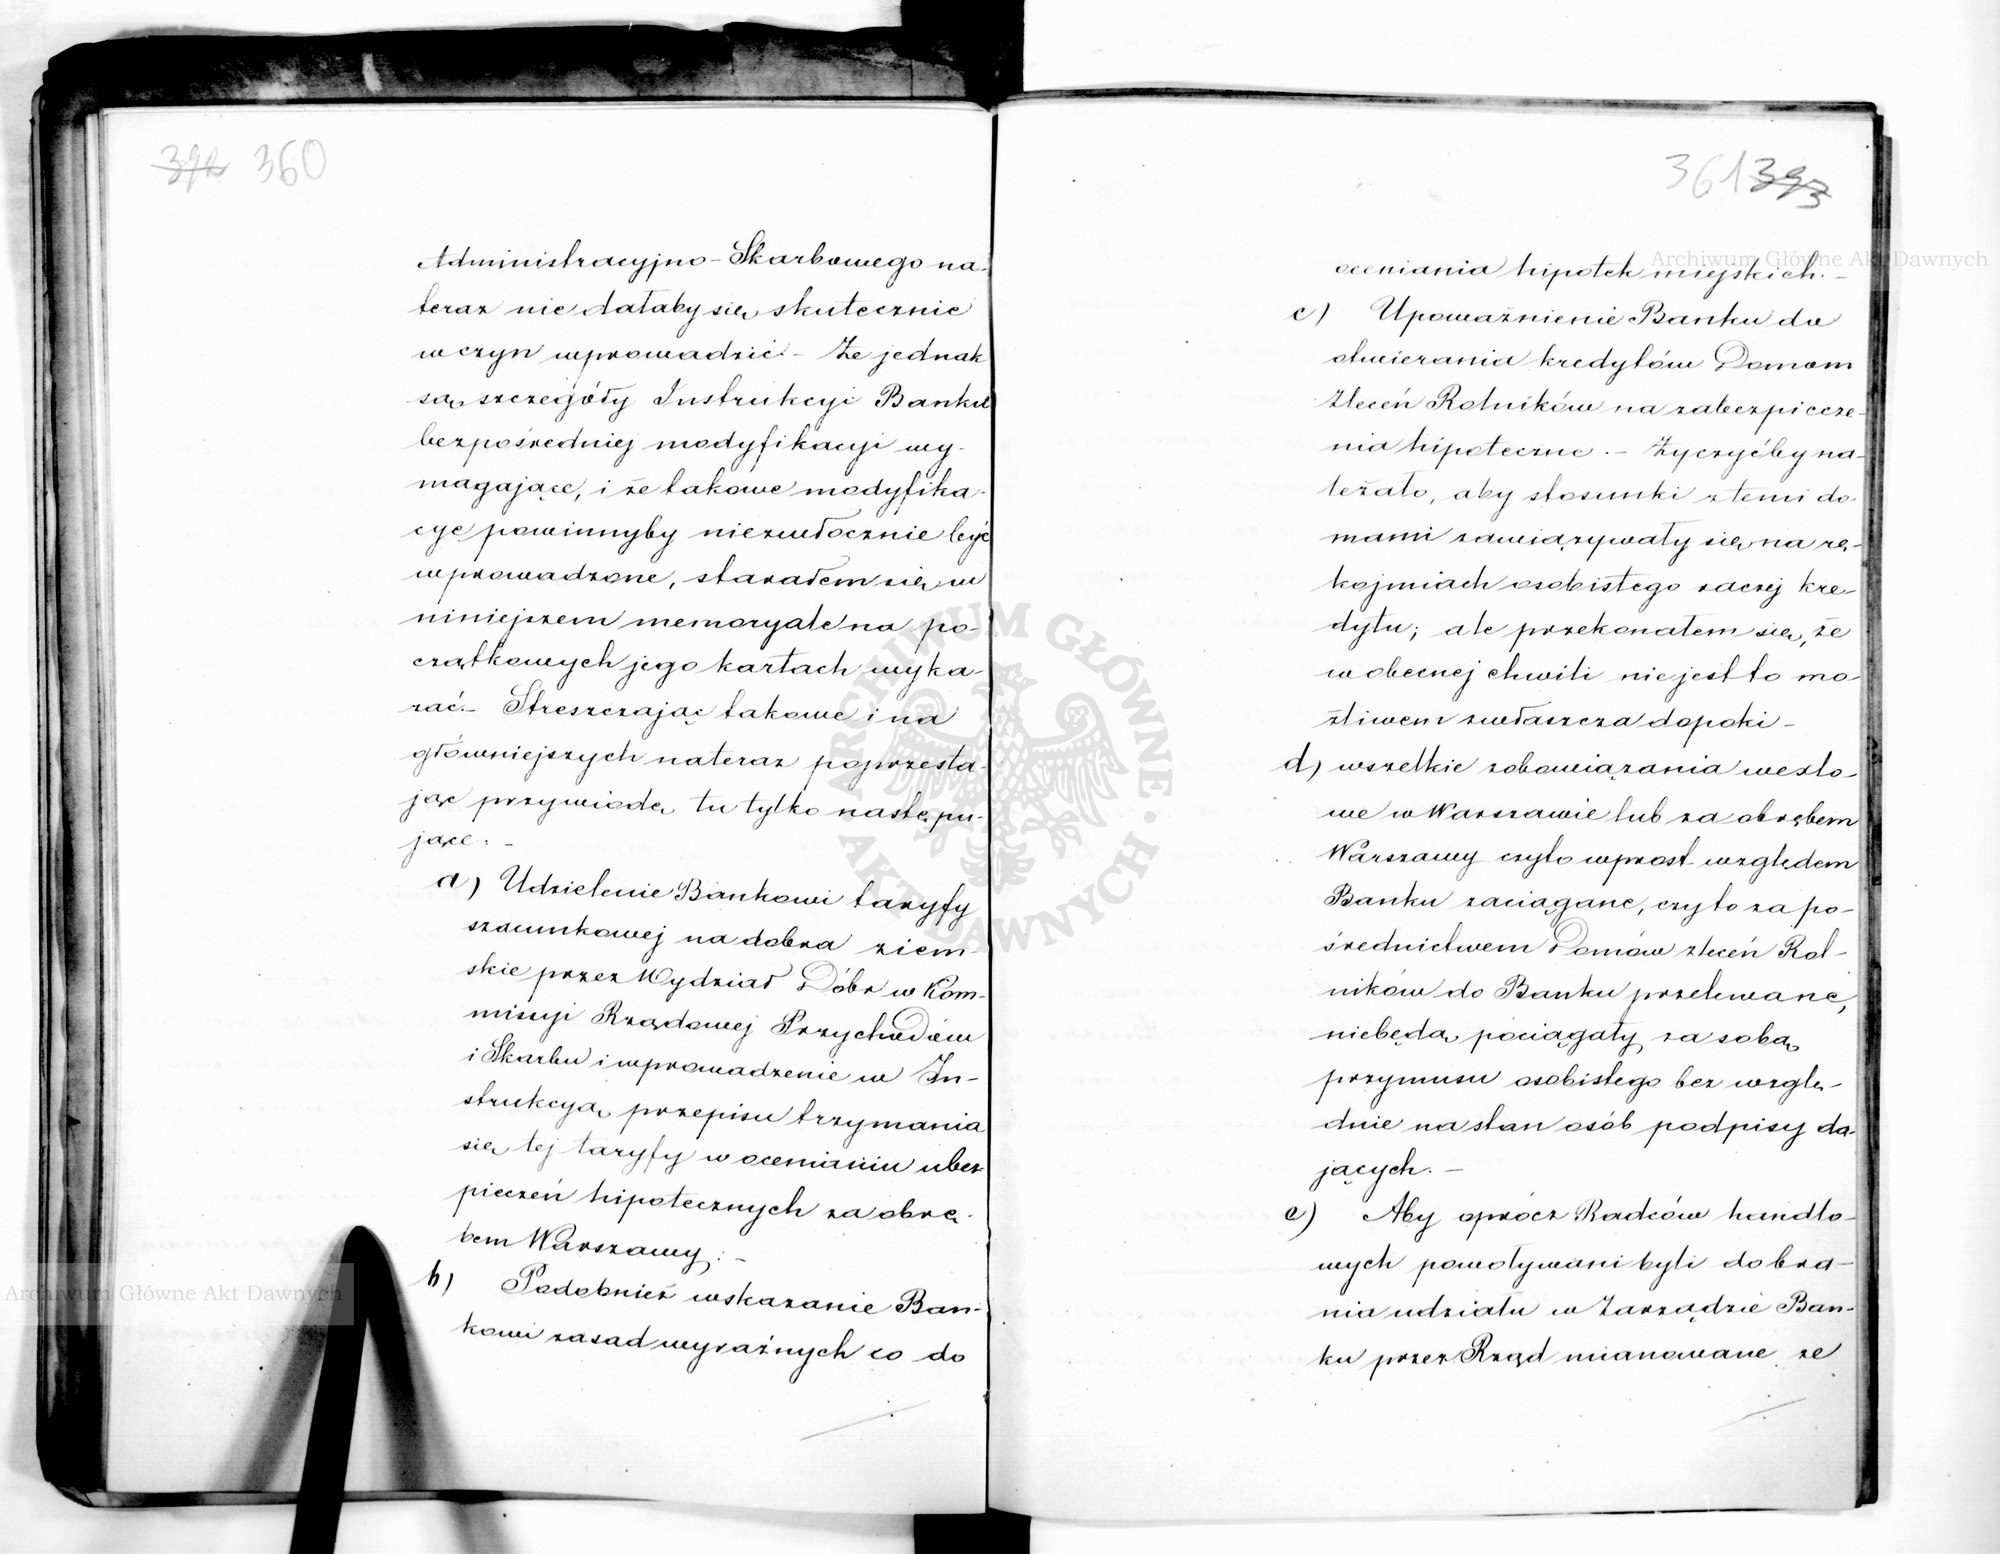 392 360
Administracyjno-Skarbowego na-
teraz nie dałaby się skutecznie
w czyn wprowadzić. - Że jednak
są szczegóły Instrukcyi Banku
bezpośredniej modyfikacyi wy-
magające, i że takowe modyfika-
cye powinnyby niezwłocznie być
wprowadzone, starałem się w
niniejszem memoryale na po-
czątkowych jego kartach wyka-
zać. - Streszczając takowe i na
główniejszych nateraz poprzesta-
jąc przywiodę tu tylko następu-
jące. -
a) Udzielenie Bankowi taryfy
szacunkowej na dobra ziem-
skie przez Wydział Dóbr w Kom-
missyi Rządowej Przychodów
i Skarbu i wprowadzenie w In-
strukcyą przepisu trzymania
się tej taryfy w ocenianiu ubez-
pieczeń hipotecznych za obrę-
bem Warszawy. -
b) Podobnież wskazanie Ban-
kowi zasad wyraźnych co do
361 393
oceniania hipotek miejskich. -
c) Upoważnienie Banku do
otwierania kredytów Domom
Zleceń Rolników na zabezpiecze-
nia hipoteczne. - Życzyćby na-
leżało, aby stosunki z temi do-
mami zawiązywały się na rę-
kojmiach osobistego raczej kre-
dytu; ale przekonałem się, że
w obecnej chwili nie jest to mo-
żliwem zwłaszcza dopoki -
d) wszelkie zobowiązania wexlo-
we w Warszawie lub za obrębem
Warszawy czyto wprost względem
Banku zaciągane, czyto za po-
średnictwem Domów zleceń Rol-
ników do Banku przelewane,
niebędą pociągały za sobą
przymusu osobistego bez wzglę-
dnie na stan osób podpisy da-
jących. -
e) Aby oprócz Radców handlo-
wych powoływani byli do bra-
nia udziału w Zarządzie Ban-
ku przez Rząd mianowane ze
Archiwum Główne Akt Dawnych
Archiwum Główne Akt Dawnych
ARCHIWUM GŁÓWNE AKT DAWNYCH